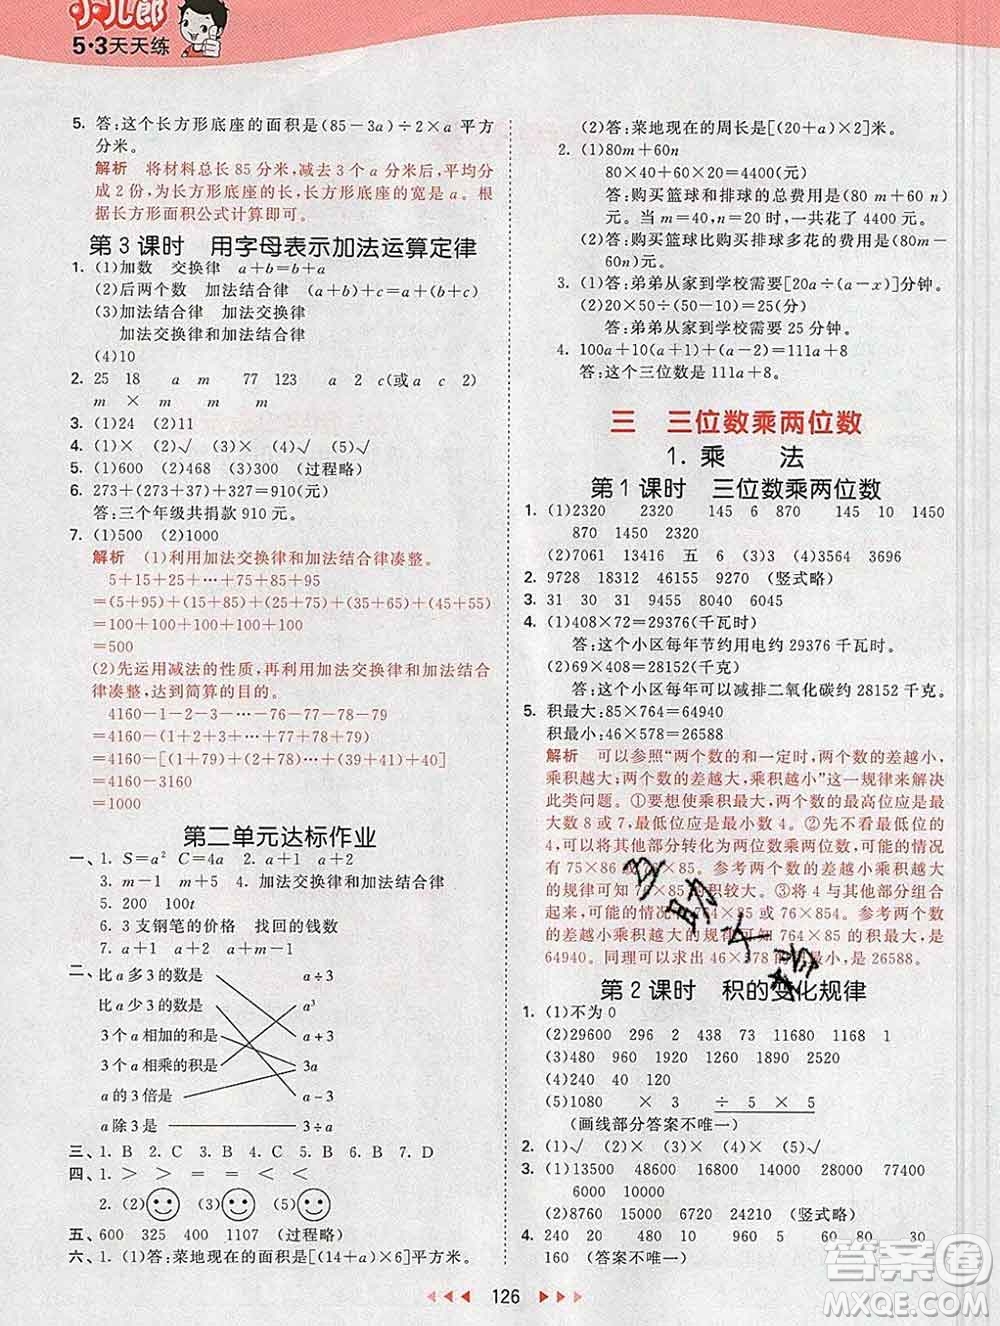 小儿郎
5·3天天练
5. 答:这个长方形底座的面积是(85－3a)÷2×a 平方
分米。
解析 将材料总长 85 分米,减去 3 个 a 分米后,平均分
成 2 份,为长方形底座的长,长方形底座的宽是 a。根
据长方形面积公式计算即可。
第 3 课时 用字母表示加法运算定律
1. (1)加数 交换律 a＋b＝b＋a
(2)后两个数 加法结合律 (a＋b)＋c＝a＋(b＋c)
(3)加法结合律 加法交换律
加法交换律和加法结合律
(4)10
2. 25 18 a m 77 123 a c(或 a c 2)
m × m a m
3. (1)24 (2)11
4. (1)× (2)√ (3)√ (4)√ (5)√
5. (1)600 (2)468 (3)300 (过程略)
6. 273＋(273＋37)＋327＝910(元)
答:三个年级共捐款 910 元。
7. (1)500 (2)1000
解析 (1)利用加法交换律和加法结合律凑整。
5＋15＋25＋…＋75＋85＋95
＝(5＋95)＋(15＋85)＋(25＋75)＋…＋(45＋55)
＝100＋100＋100＋100＋100
＝500
(2)先运用减法的性质,再利用加法交换律和加法结合
律凑整,达到简算的目的。
4160－1－2－3－…－76－77－78－79
＝4160－(1＋2＋3＋…＋76＋77＋78＋79)
＝4160－[(1＋79)＋(2＋78)＋…＋(39＋41)＋40]
＝4160－3160
＝1000
第二单元达标作业
一、1. S＝a² C＝4a 2. a＋1 a＋2
3. m－1 m＋5 4. 加法交换律和加法结合律
5. 200 100t
6. 3 支钢笔的价格 找回的钱数
7. a＋1 a＋2 m＋1 m＋2
二、比 a 多 3 的数是 a÷3
比 a 少 3 的数是 a³
3 个 a 相加的和是 a＋3
3 个 a 相乘的积是 3a
a 的 3 倍是 a－3
a 除 3 是 3÷a
三、1. B 2. B 3. C 4. B 5. B 6. A
四、1. ＞ ＞ ＝ ＝ ＜ ＜
2. (2) (3) (5)
五、600 325 400 1107 (过程略)
六、1. (1)答:菜地现在的面积是[(14＋a)×6]平方米。
(2)答:菜地现在的周长是[(20＋a)×2]米。
2. (1)80m＋60n
80×40＋60×20＝4400(元)
答:购买篮球和排球的总费用是(80 m＋60 n)
元。当 m＝40,n＝20 时,一共花了 4400 元。
(2)答:购买篮球比购买排球多花的费用是(80m－
60n)元。
3. (1)答:弟弟从家到学校需要[20a÷(a－x)]分钟。
(2)20×50÷(50－10)＝25(分)
答:弟弟从家到学校需要 25 分钟。
4. 100a＋10(a＋1)＋(a－2)＝111a＋8
答:这个三位数是 111a＋8。
三 三位数乘两位数
1. 乘 法
第 1 课时 三位数乘两位数
1. (1)2320 2320 145 6 870 145 10 1450
870 1450 2320
(2)7061 13416 五 6 (3)3 (4)3564 3696
2. 9728 18312 46155 9270 (竖式略)
3. 31 30 31 9455 8680 9030 6045
4. (1)408×72＝29376(千瓦时)
答:这个小区每年节约用电约 29376 千瓦时。
(2)69×408＝28152(千克)
答:这个小区每年可以减排二氧化碳约 28152 千克。
5. 积最大:85×764＝64940
积最小:46×578＝26588
解析 可以参照“两个数的和一定时,两个数的差越小,
乘积越大;两个数的差越大,乘积越小”这一规律来解决
此类问题。①要想使乘积最大,两个数的最高位应是最
大数 8 和 7,最低位应是最小数 4。②先不看最低位的
4,可以将其他部分转化为两位数乘两位数,可能的情况
有 75×86 和 76×85。参考两个数的差越小乘积越大
的规律可知 76×85 的积较大。③将 4 与其他部分组合
起来,可能的情况有 85×764 或 76×854。参考两个数
的差越小乘积越大的规律可知 85×764 的积最大,是
64940。同理可以求出 46×578 的积最小,是 26588。
第 2 课时 积的变化规律
1. (1)不为 0
(2)29600 296 2 438 73 11680 1168 2
(3)480 960 1920 80 40 20
(4)240
(5)1080 × 3 ÷ 5 × 5
(画线部分答案不唯一)
2. (1)√ (2)× (3)× (4)× (5)√
3. (1)13500 48600 16200 28000 77400
6000 10000
(2)8750 15000 6720 24210 (竖式略)
4. 240 20 40 80 30
160 (答案不唯一)
126
答案圈
MXQE.COM